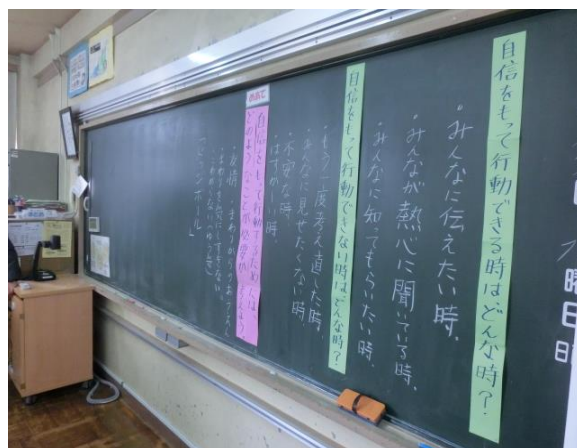 曜日
自信をもって行動できる時はどんな時?
・みんなに伝えたい時。
・みんなが熱心に聞いている時。
・みんなに知ってもらいたい時。
自信をもって行動できない時はどんな時?
・もう一度考え直した時。
・みんなに見せたくない時
・不安な時。
はずかしい時。
めあて
自信をもって行動するためには、
どのようなことが必要か考えよう。